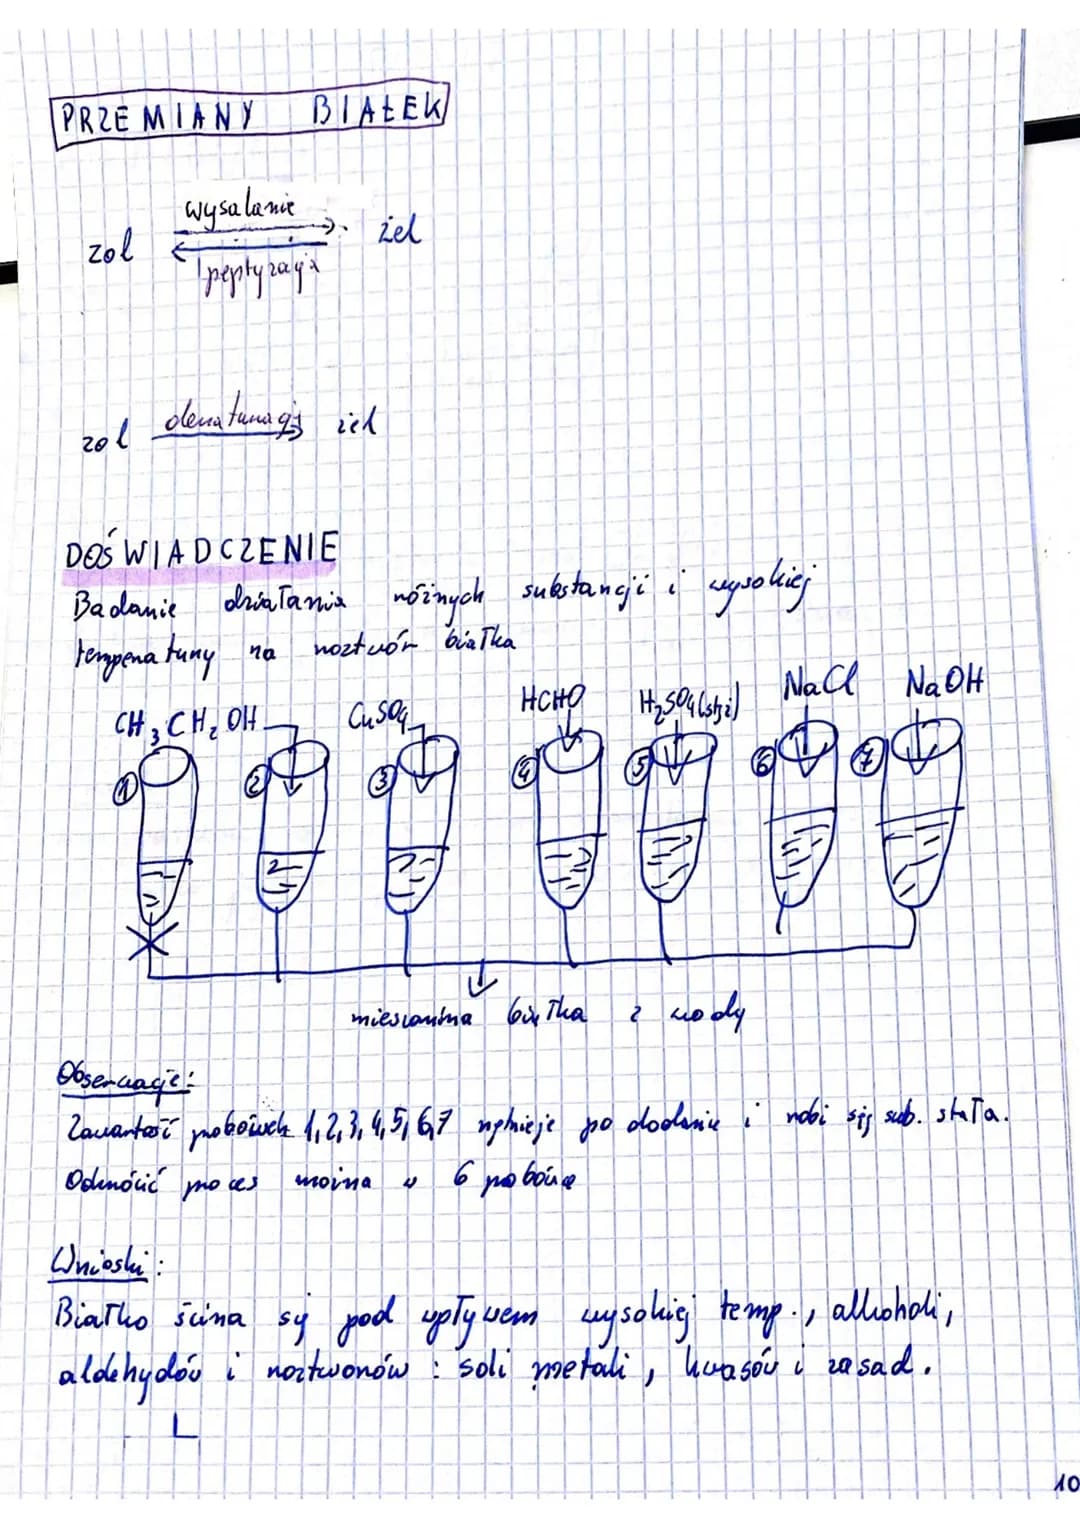 PRZEMIANY BIAŁEK
wysalanie
zol żel
peptyzacja
zol denaturacja żel
DOŚWIADCZENIE
Badanie działania różnych substancji i wysokiej
temperatury na roztwór białka
CH3CH2OH CuSO4 HCHO H2SO4(stęż) NaCl NaOH
1 2 3 4 5 6 7
mieszanina białka z wody
Obserwacje:
Zawartość probówek 1,2,3,4,5,6,7 po dodanie i robi się sub. stała.
Odwrócić proces można w 6 probówce
Wnioski:
Białko ścina się pod wpływem wysokiej temp., alkoholi,
aldehydów i roztworów: soli metali, kwasów i zasad.
10